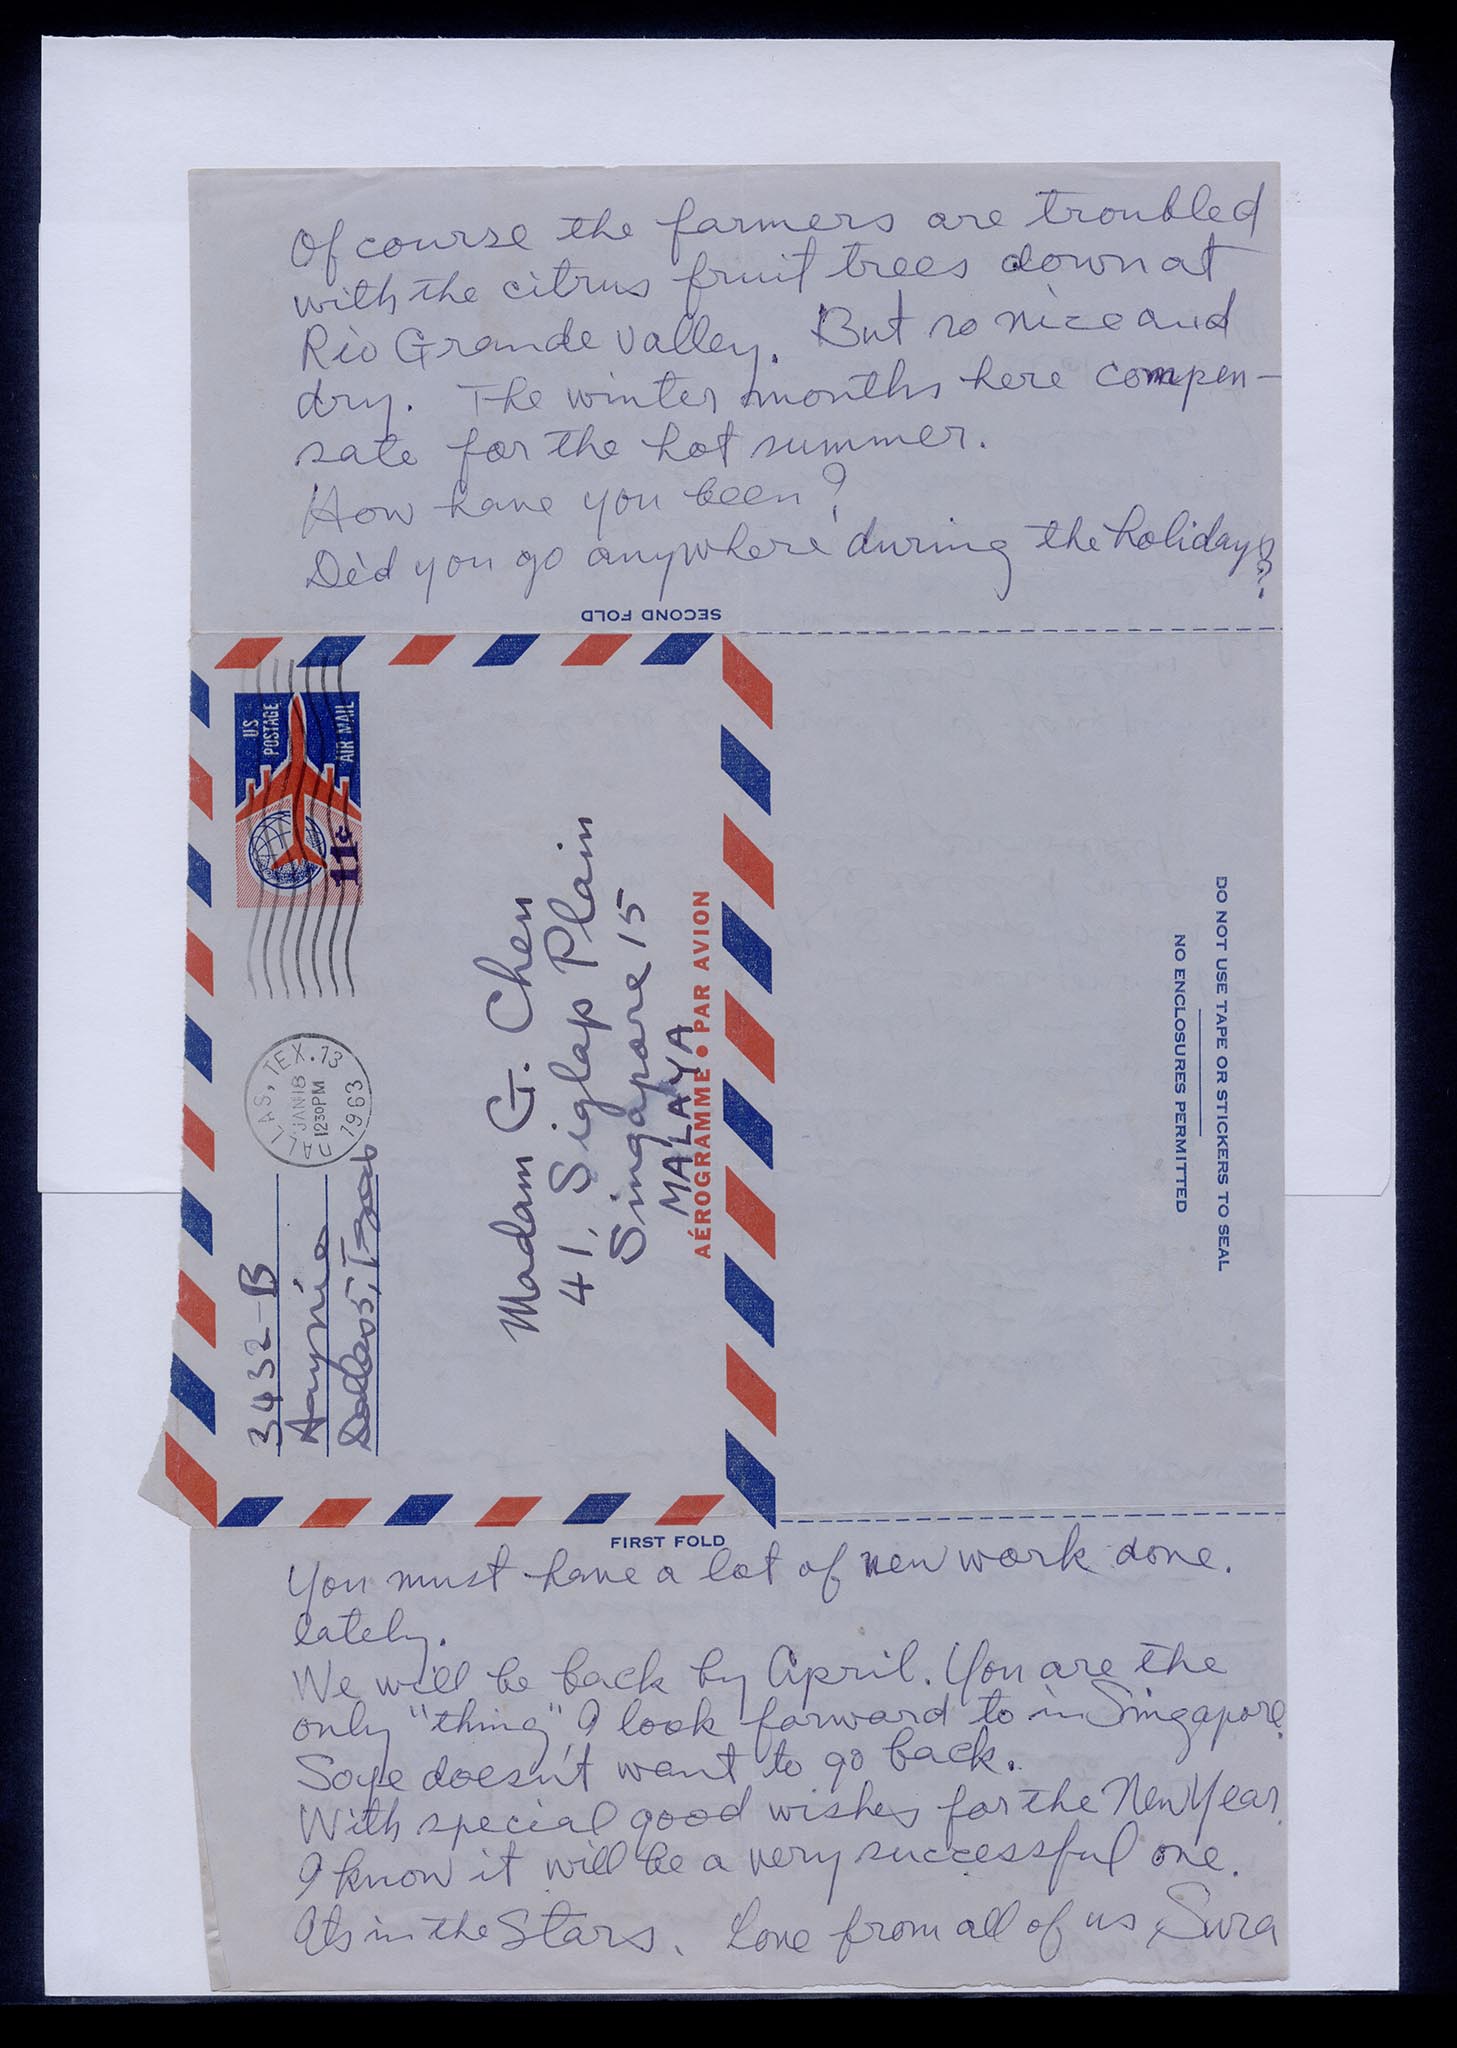 Of course the farmers are troubled
with the citrus fruit trees down at
Rio Grande Valley. But so nice and
dry. The winter months here compen-
sate for the hot summer.
How have you been?
Did you go anywhere during the holidays?
SECOND FOLD
US
POSTAGE
AIR MAIL
11¢
DALLAS, TEX. 13
JAN 18
12 30 PM
1963
3432-B
Haynie
Dallas 5, Texas
Madam G. Chen
41, Siglap Plain
Singapore 15
MALAYA
AÉROGRAMME • PAR AVION
NO ENCLOSURES PERMITTED
DO NOT USE TAPE OR STICKERS TO SEAL
FIRST FOLD
You must have a lot of new work done.
lately.
We will be back by April. You are the
only "thing" I look forward to in Singapore.
Soye doesn't want to go back.
With special good wishes for the New Year.
I know it will be a very successful one.
Its in the Stars. Love from all of us Sura